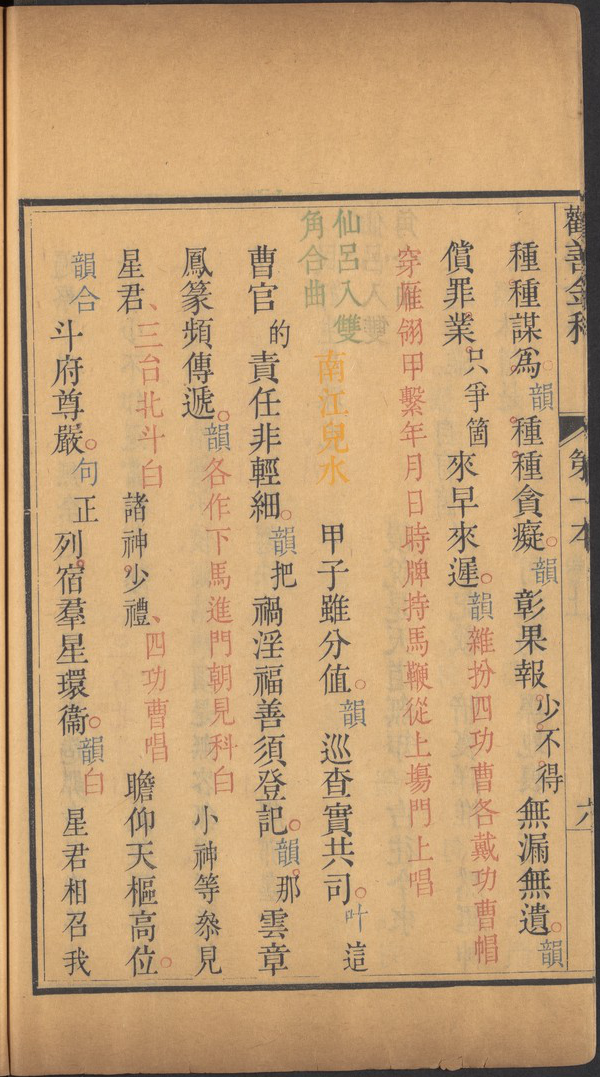 勸善金科
第一本
六
種種謀爲。韻種種貪癡。韻彰果報少不得無漏無遺。韻
償罪業。只爭箇來早來遲。韻雜扮四功曹各戴功曹帽
穿雁翎甲繫年月日時牌持馬鞭從上場門上唱
仙呂入雙角合曲 南江兒水 甲子雖分值。韻巡查實共司。叶這
曹官的責任非輕細。韻把禍淫福善須登記。韻那雲章
鳳篆頻傳遞。韻各作下馬進門朝見科白 小神等叅見
星君、三台北斗白 諸神少禮、四功曹唱 瞻仰天樞高位。
韻合斗府尊嚴。句正列宿羣星環衞。韻白 星君相召我